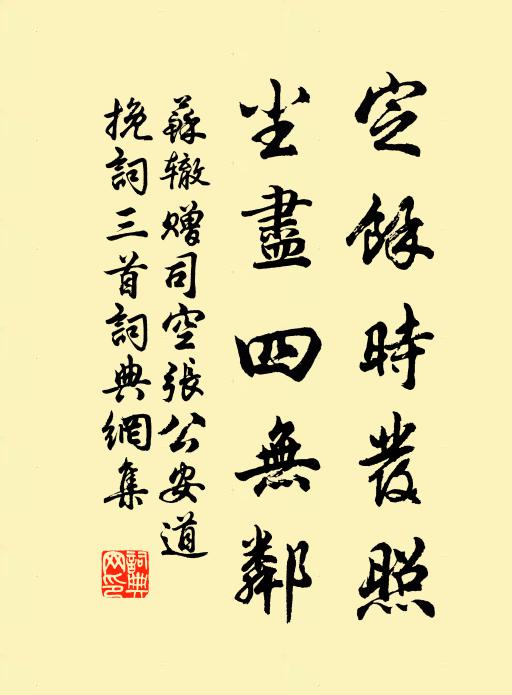 定餘時發照
尘盡四無鄰
蘇辙赠司空張公安道
挽詞三首詞典網集
詞典
网印